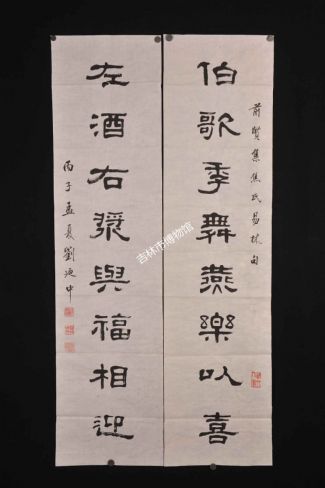 前贤集焦氏易林句
伯歌季舞燕樂以喜
左酒右漿與福相迎
丙子孟夏劉迺中
吉林市博物馆